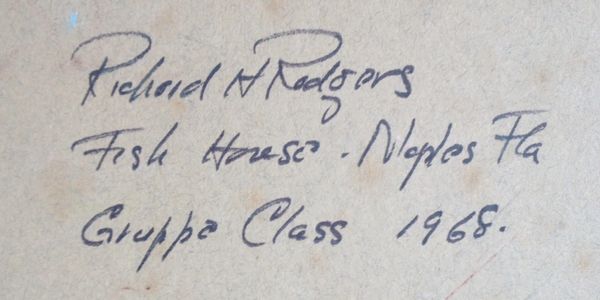 Richard H Rodgers
Fish House. Naples Fla
Gruppe Class 1968.